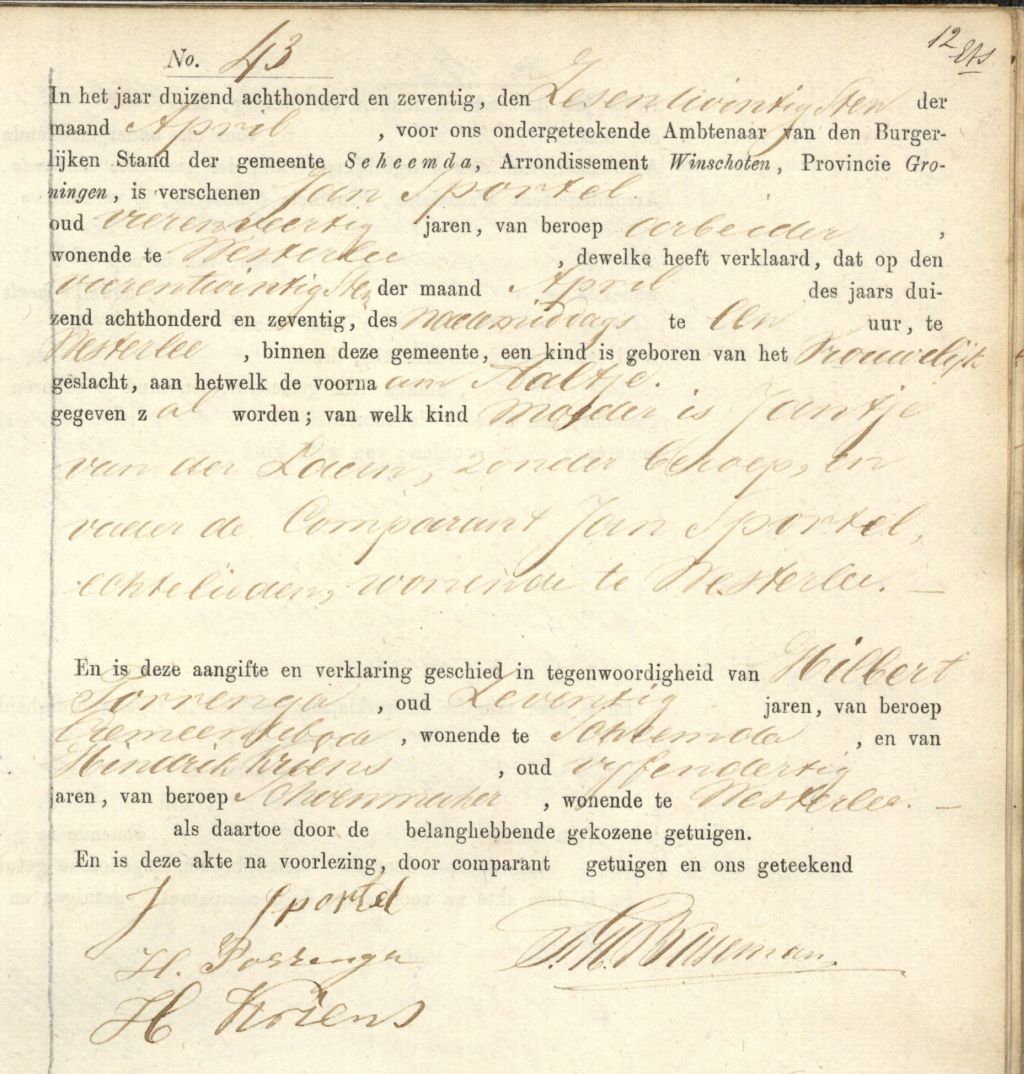 12
No. 43
In het jaar duizend achthonderd en zeventig, den Zesentwintigsten der
maand April , voor ons ondergeteekende Ambtenaar van den Burger-
lijken Stand der gemeente Scheemda, Arrondissement Winschoten, Provincie Gro-
ningen, is verschenen Jan Sportel
oud vierenveertig jaren, van beroep arbeider ,
wonende te Westerlee , dewelke heeft verklaard, dat op den
vierentwintigsten der maand April des jaars dui-
zend achthonderd en zeventig, des namiddags te een uur, te
Westerlee , binnen deze gemeente, een kind is geboren van het Vrouwelijk
geslacht, aan hetwelk de voornaam Aaltje.
gegeven zal worden; van welk kind moeder is Jantje
van der Laan, zonder beroep, en
vader de Comparant Jan Sportel,
echtelieden, wonende te Westerlee. —
En is deze aangifte en verklaring geschied in tegenwoordigheid van Hilbert
Torrenga , oud Zeventig jaren, van beroep
Gemeentebode , wonende te Scheemda , en van
Hindrik Kriens , oud vyfendertig
jaren, van beroep Schoenmaker , wonende te Westerlee. —
als daartoe door de belanghebbende gekozene getuigen.
En is deze akte na voorlezing, door comparant getuigen en ons geteekend
J Sportel
H. Torrenga
H Kriens